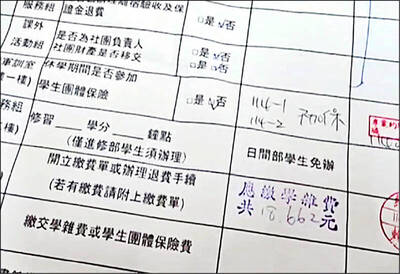 服務組
證金退費
□是 ☑否
課外
活動組
是否為社團負責人
社團財產是否移交
□是☑否
□是☑否
休學期間是否參加
學生團體保險
□是☑否
114-1
114-2 不加保
修習___學分___鐘點
(僅進修部學生須辦理)
日間部學生免辦
開立繳費單或辦理退費手續
(若有繳費請附上繳費單)
應繳學雜費
共18,662元
繳交學雜費或學生團體保險費